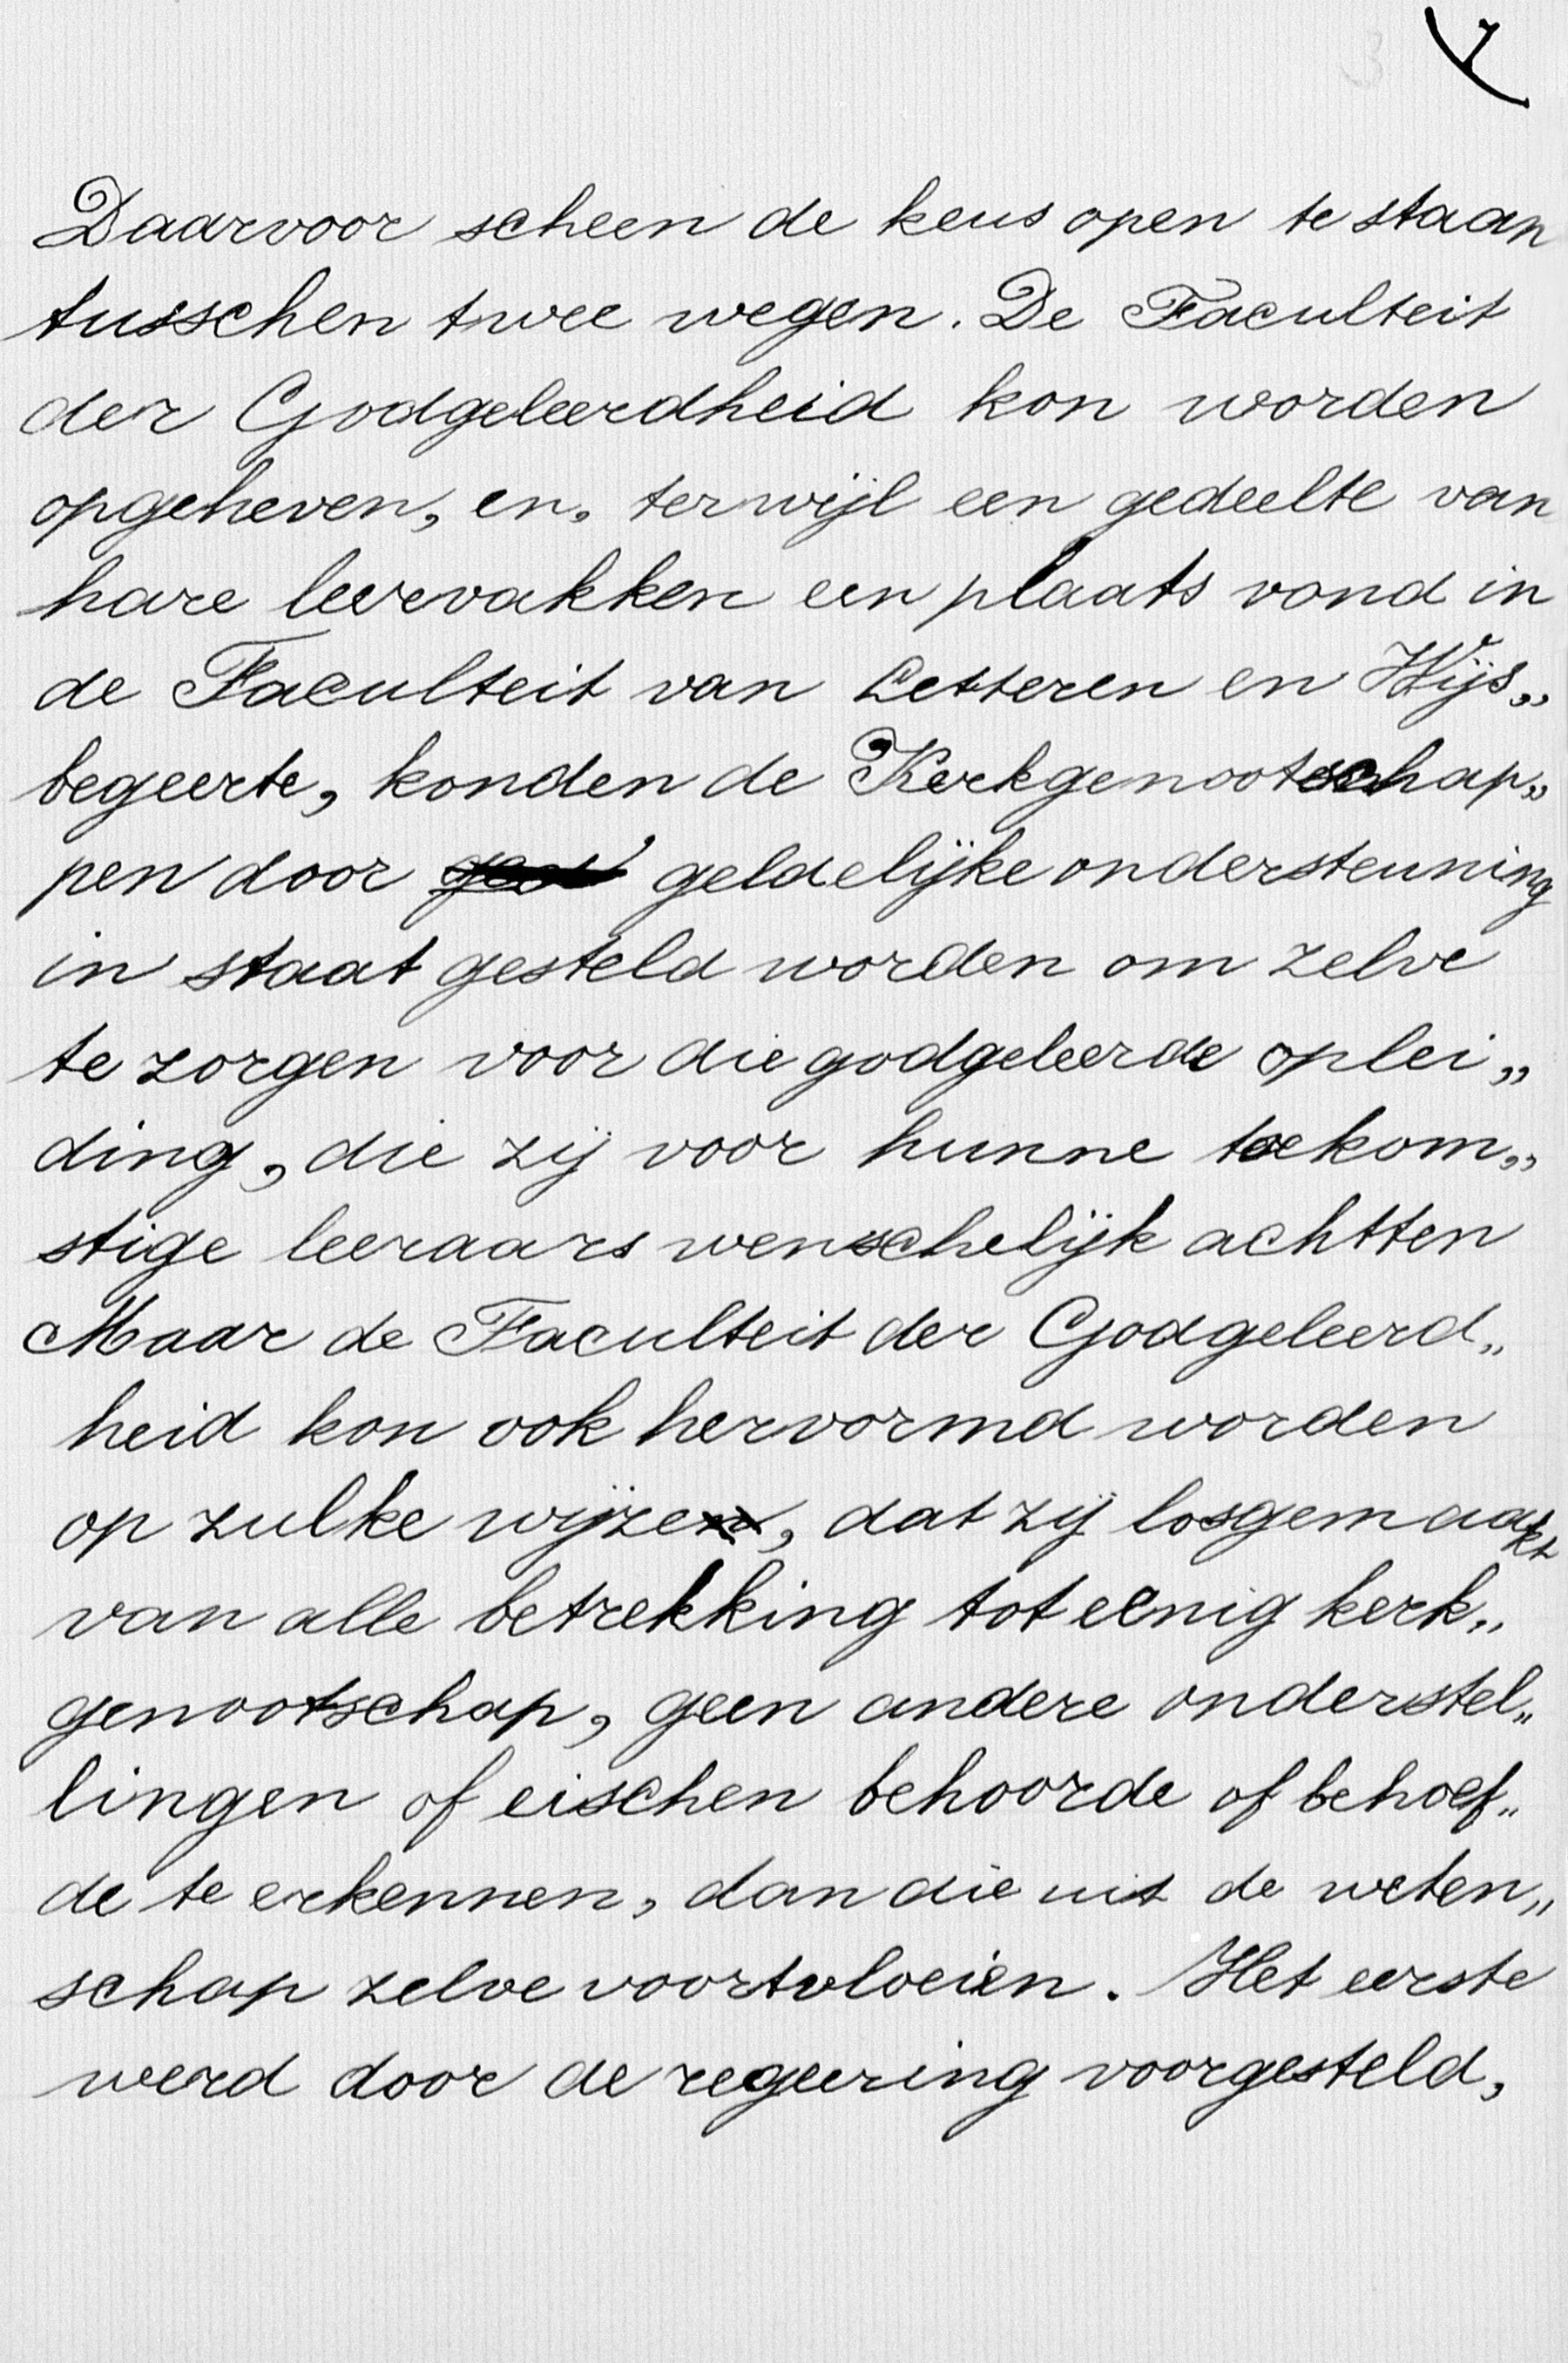 Daarvoor scheen de keus open te staan
tusschen twee wegen. De Faculteit
der Godgeleerdheid kon worden
opgeheven, en, terwijl een gedeelte van
hare leervakken een plaats vond in
de Faculteit van Letteren en Wijs„
begeerte, konden de Kerkgenootschap„
pen door geldelijke ondersteuning
in staat gesteld worden om zelve
te zorgen voor die godgeleerde oplei„
ding, die zij voor hunne toekom„
stige leeraars wenschelijk achtten
Maar de Faculteit der Godgeleerd„
heid kon ook hervormd worden
op zulke wijze, dat zij losgemaakt
van alle betrekking tot eenig kerk„
genootschap, geen andere onderstel„
lingen of eischen behoorde of behoef„
de te erkennen, dan die uit de weten„
schap zelve voortvloeien. Het eerste
werd door de regeering voorgesteld,